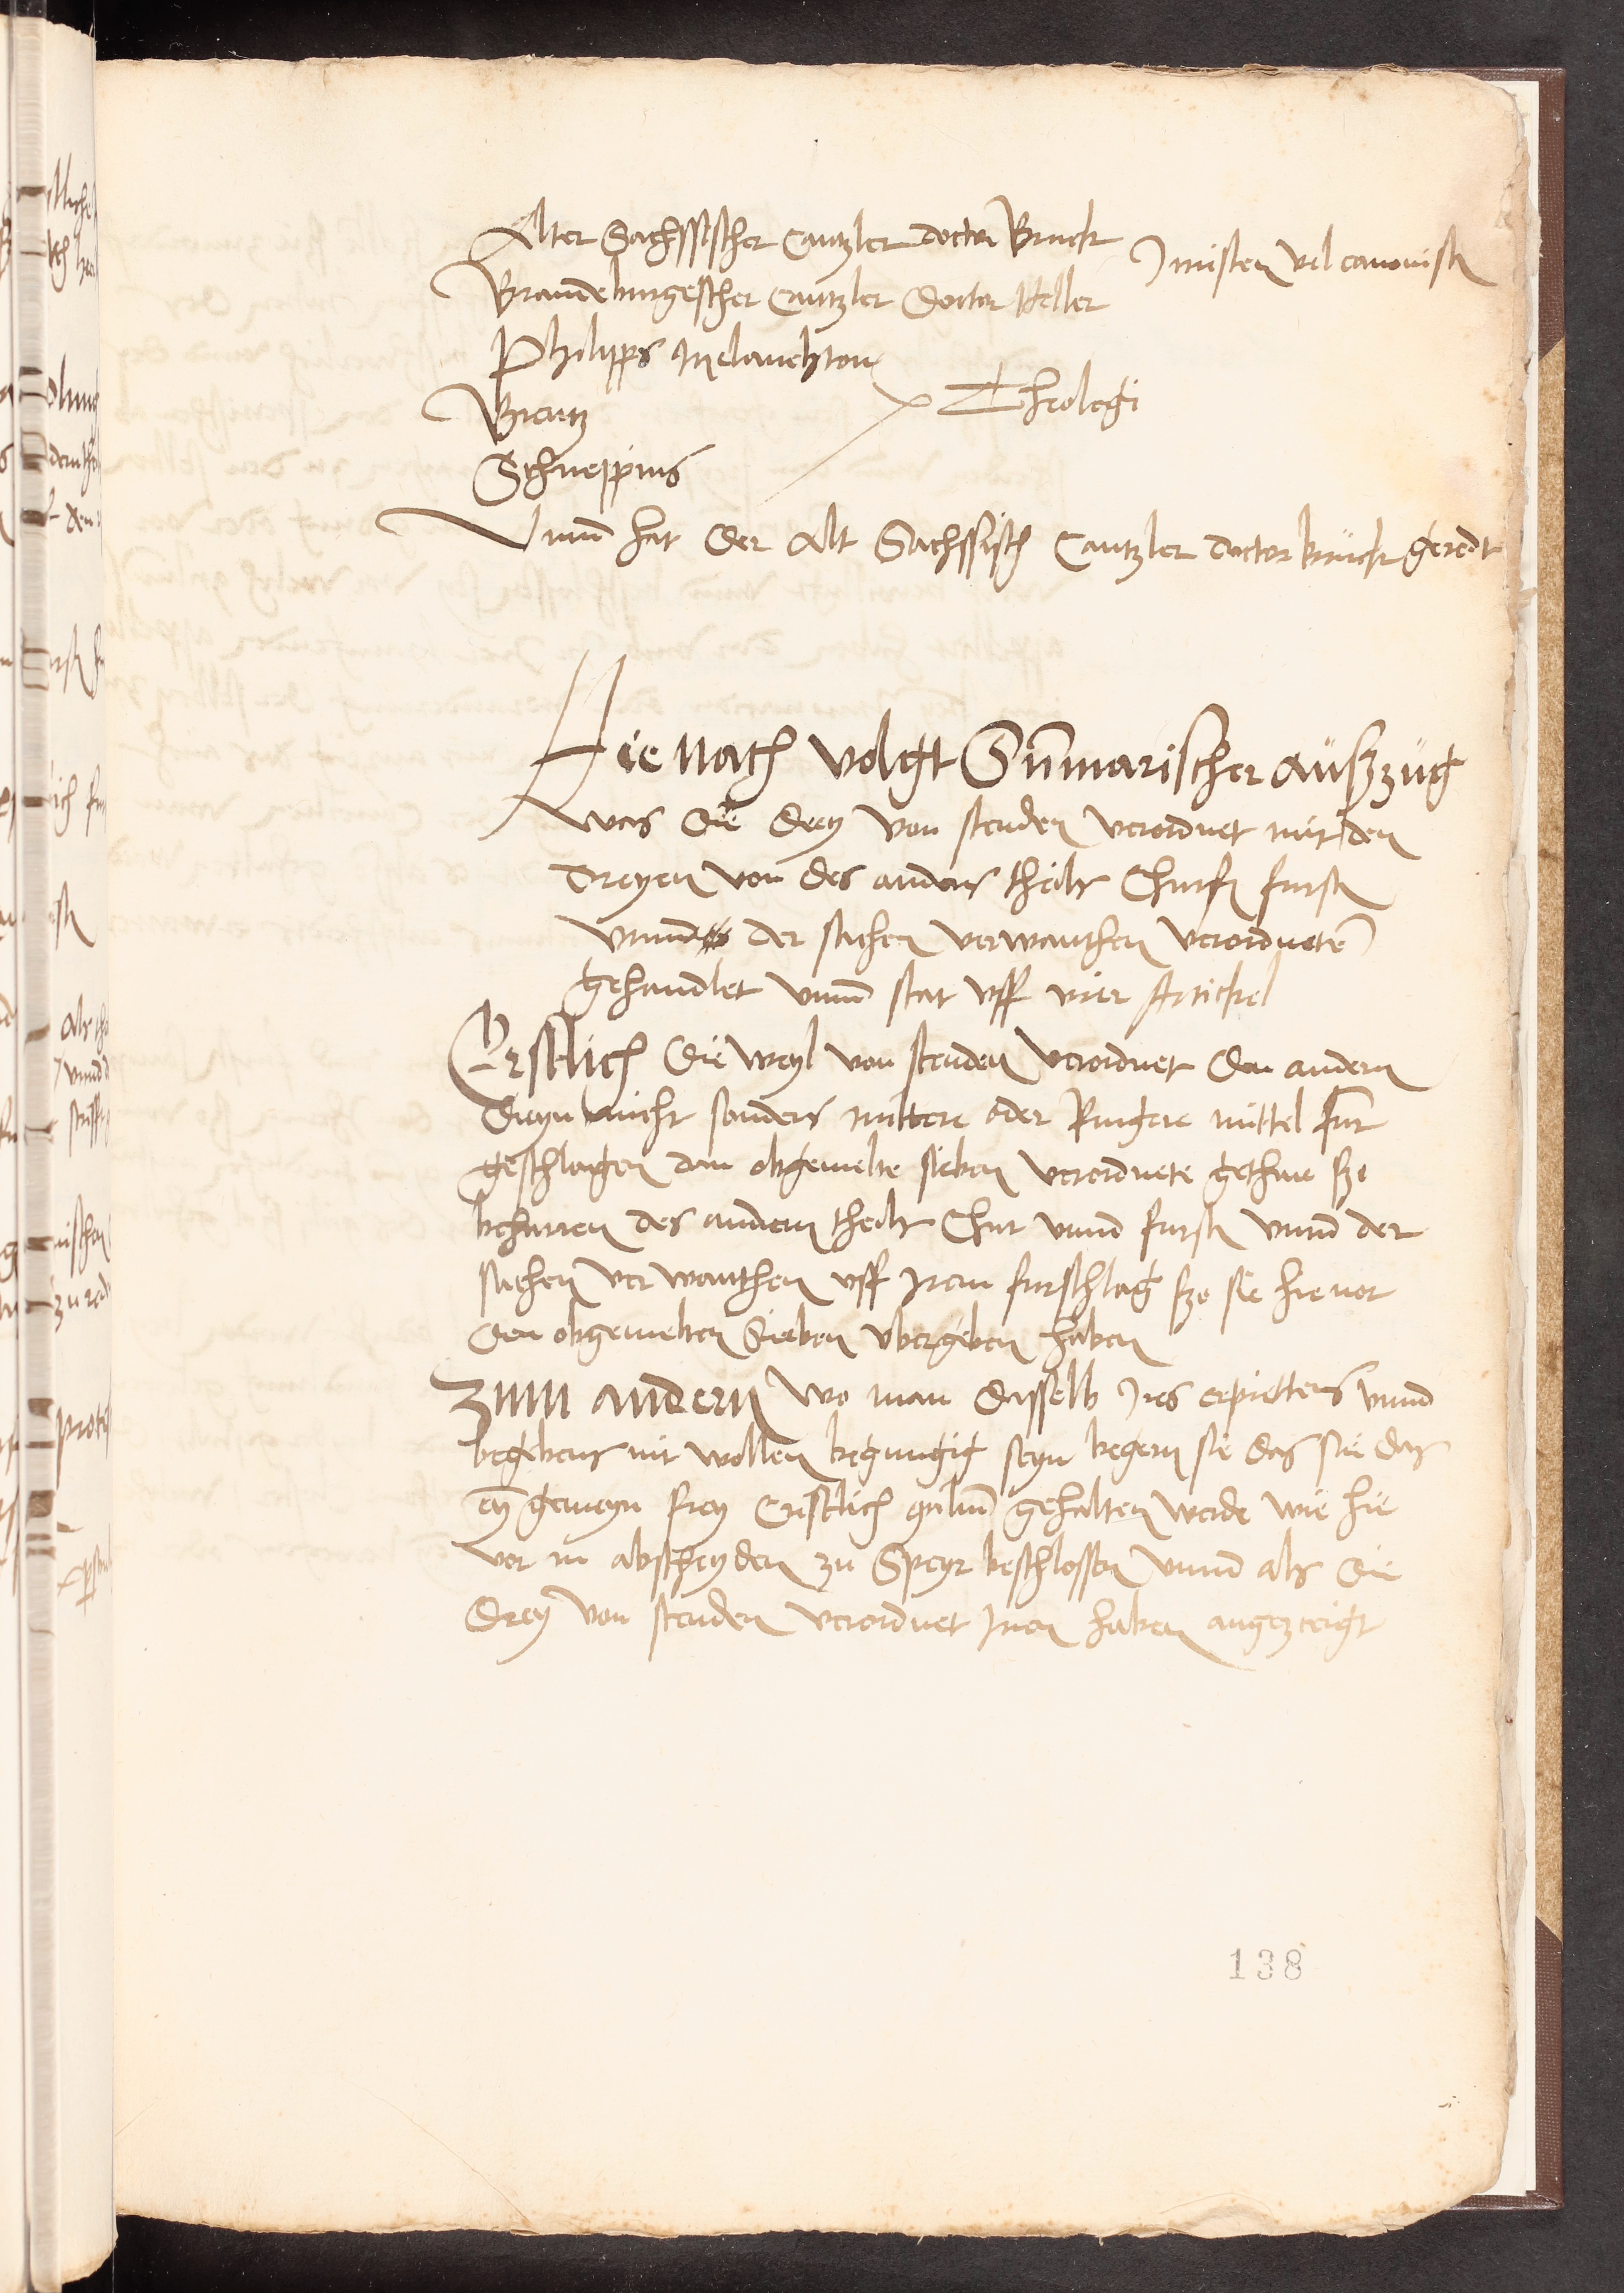 Alter Sachssischer Cantzler doctor Bruck
Juristen vel canonisten
Brandeburgescher Cantzler Doctor Heller
Philipps Melanchton
Theologi
Brentz
Schneppius
Vnnd hat der Alt Sachssisch Cantzler doctor bruck geredt
Hie nach volgt Sumarischer außzug
was die drey von stenden verordnet mit den
dreyen von des anderns theils Churf fursten
vnnd der sachen verwanthen verordneten
gehandlet vnnd stat vff vier Artickel
Erstlich die weyl von stenden verordnet den andern
dreyn nicht sonders mittere oder Ringere mittel fur
geschlagen dan obgemelte sieben verordnete gethan szo
beharren des andern theils Chur vnnd fursten vnnd der
sachen ver wanthen vff Irem furschlag szo sie hieuor
den obgemelten Sieben vbergeben haben
Zum andern wo man dasselb Ires erpiettens vnnd
begebens nit wollen begnugig seyn begern sie das sie das
eyn gemeyn frey Cristlich gehalten werde wie hie
vor in abscheyden zu Speyr beschlossen vnnd als die
drey von stenden verordnet Inen haben angezeigt
138